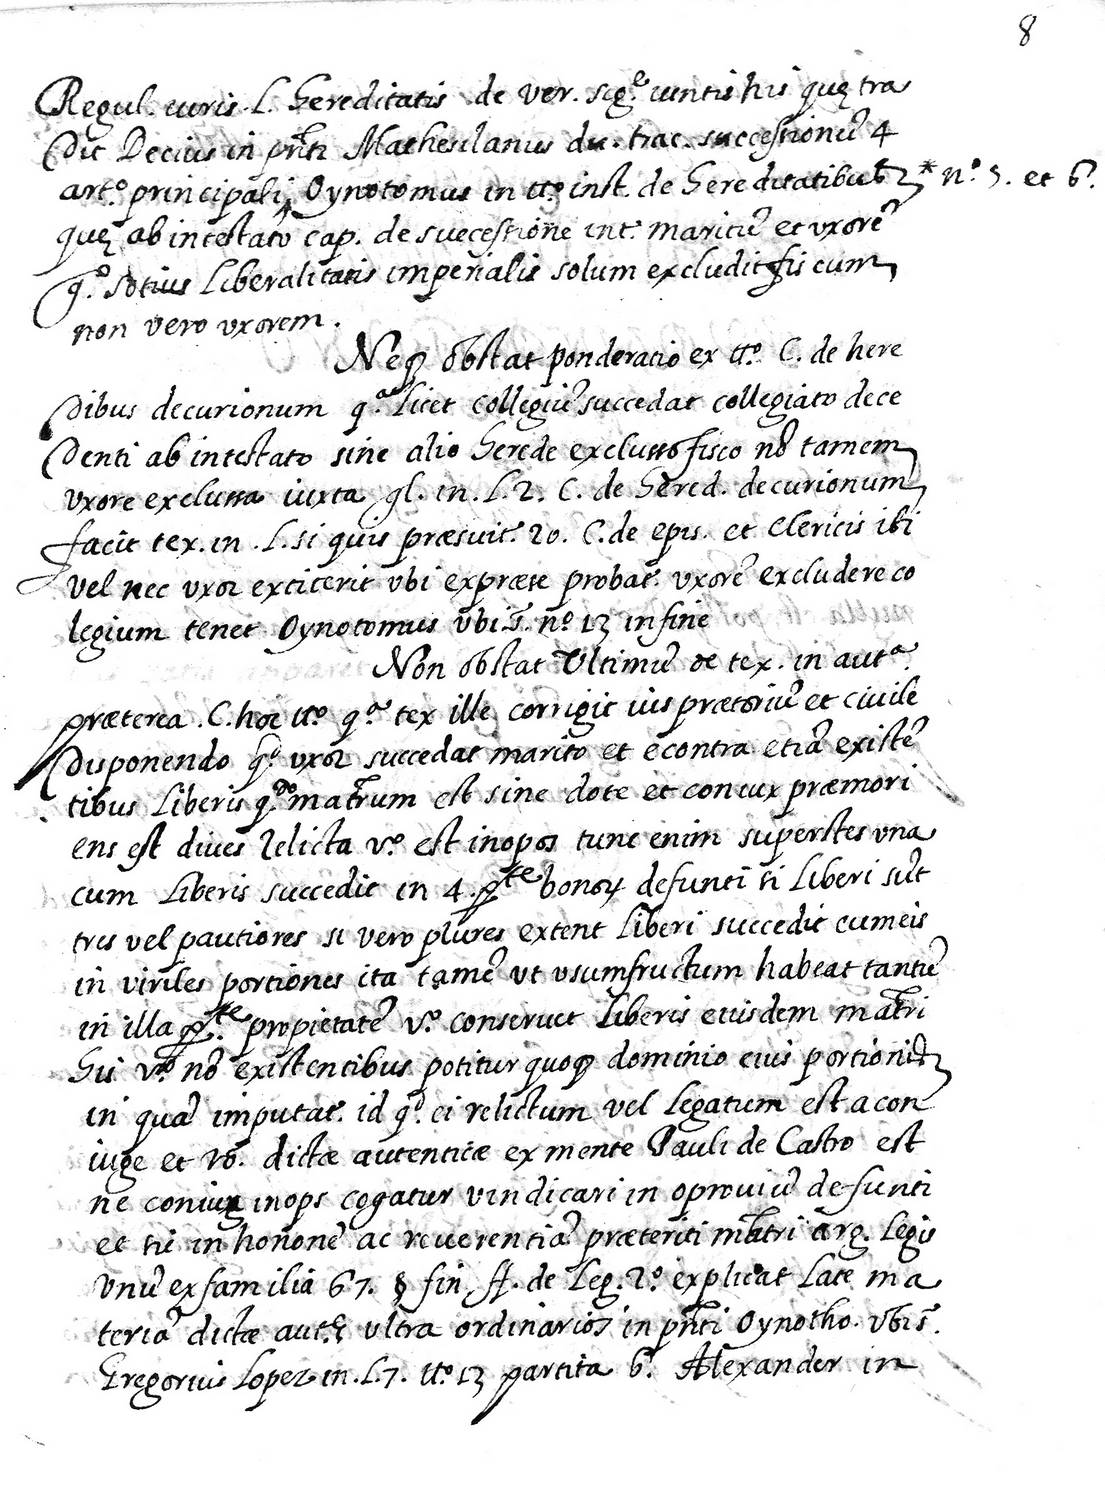 8
Regul. iuris. L. hereditatis de ver. sig.ᵉ iunctis his quę tra
dit Decius in pn̄ti Mathesilanus du. trac. successionū 4
art.º principali, Oynotomus in tt.º inst. de hereditatibus * n.º 5. et 6.
quę ab intestato cap. de successione int. maritū et uxorē
q.º sotius liberalitatis imperialis solum excludit fiscum
non vero uxorem.
Neq obstat ponderatio ex tt.º C. de here
dibus decurionum q.ᵃ licet collegiū succedat collegiato dece
denti ab intestato sine alio herede exclusso fisco nō tamem
uxore exclussa iuxta gl. in. L. 2. C. de hered. decurionum
facit tex. in. L. si quis præsuit. 20. C. de epis. et clericis ibi
vel nec uxor exciterit ubi expræse probat. uxorē excludere co
legium tenet Oynotomus ubi s. n.º 13 in fine
Non obstat Ultimū de tex. in aut.ᵃ
præterea. C. hoc tt.º q.ᵃ tex ille corrigit ius prætoriū et civile
disponendo q.ᵈ uxor succedat marito et econtra etiā existē
tibus liberis q.ᵈᵒ matr̄um est sine dote et coniux præmori
ens est dives relicta v.º est inopos tunc enim superstes una
cum liberis succedit in 4. p.ᵗᵉ bonoꝝ defunti si liberi sūt
tres vel pautiores si vero plures extent liberi succedit cum eis
in viriles portiones ita tamē ut usumfructum habeat tantū
in illa p.ᵗᵉ propietatē v.º conservet liberis eiusdem matr̄i
hii v.º nō existentibus potitur quoq dominio eius portionis
in quā imputat. id q.ᵈ ei relictum vel legatum est a con
iuge et rō. dictæ autenticæ ex mente Pauli de Castro est
ne coniux inops cogatur vindicari in oproviū defunti
et sit in honorē ac reverentiā præteriti mātri arg. legis
unū ex familia 67. § fin ff. de leg. 2.º explicat late ma
teriā dictæ aut.ę ultra ordinarios in pn̄ti Oynotho. ubi s.
Gregorius Lopez in. L. 7. tt.º 13 partita 6. Alexander in